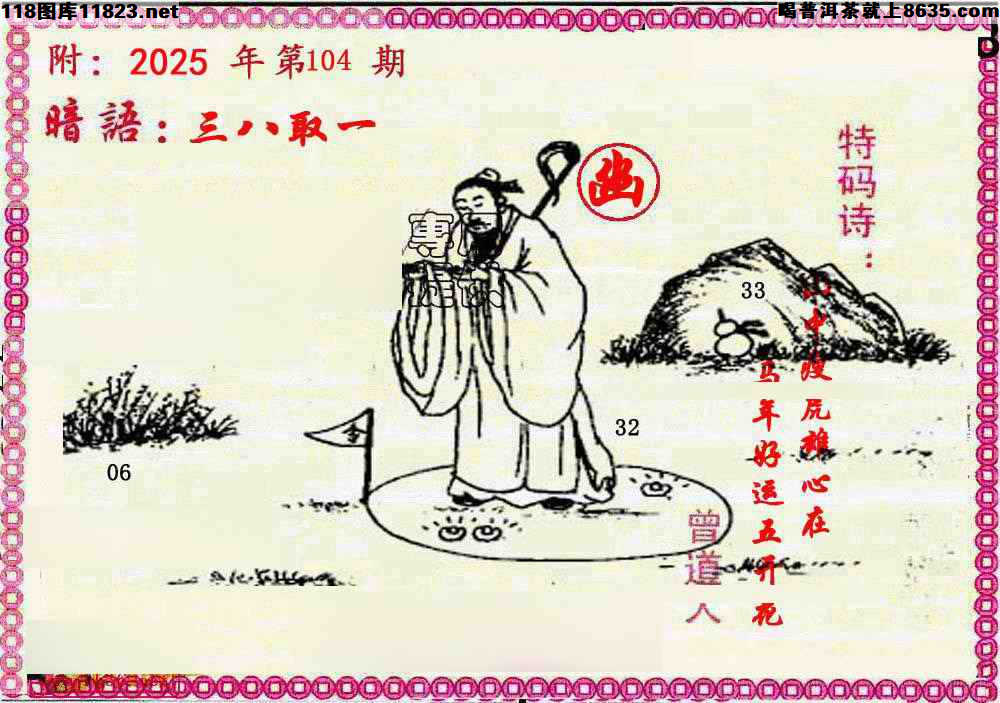 118图库11823.net
喝普洱茶就上8635.com
附：2025 年第104 期
暗語：三八取一
幽
特码诗：
心中疲厌雄心在
马年好运五开花
33
32
06
令
曾道人